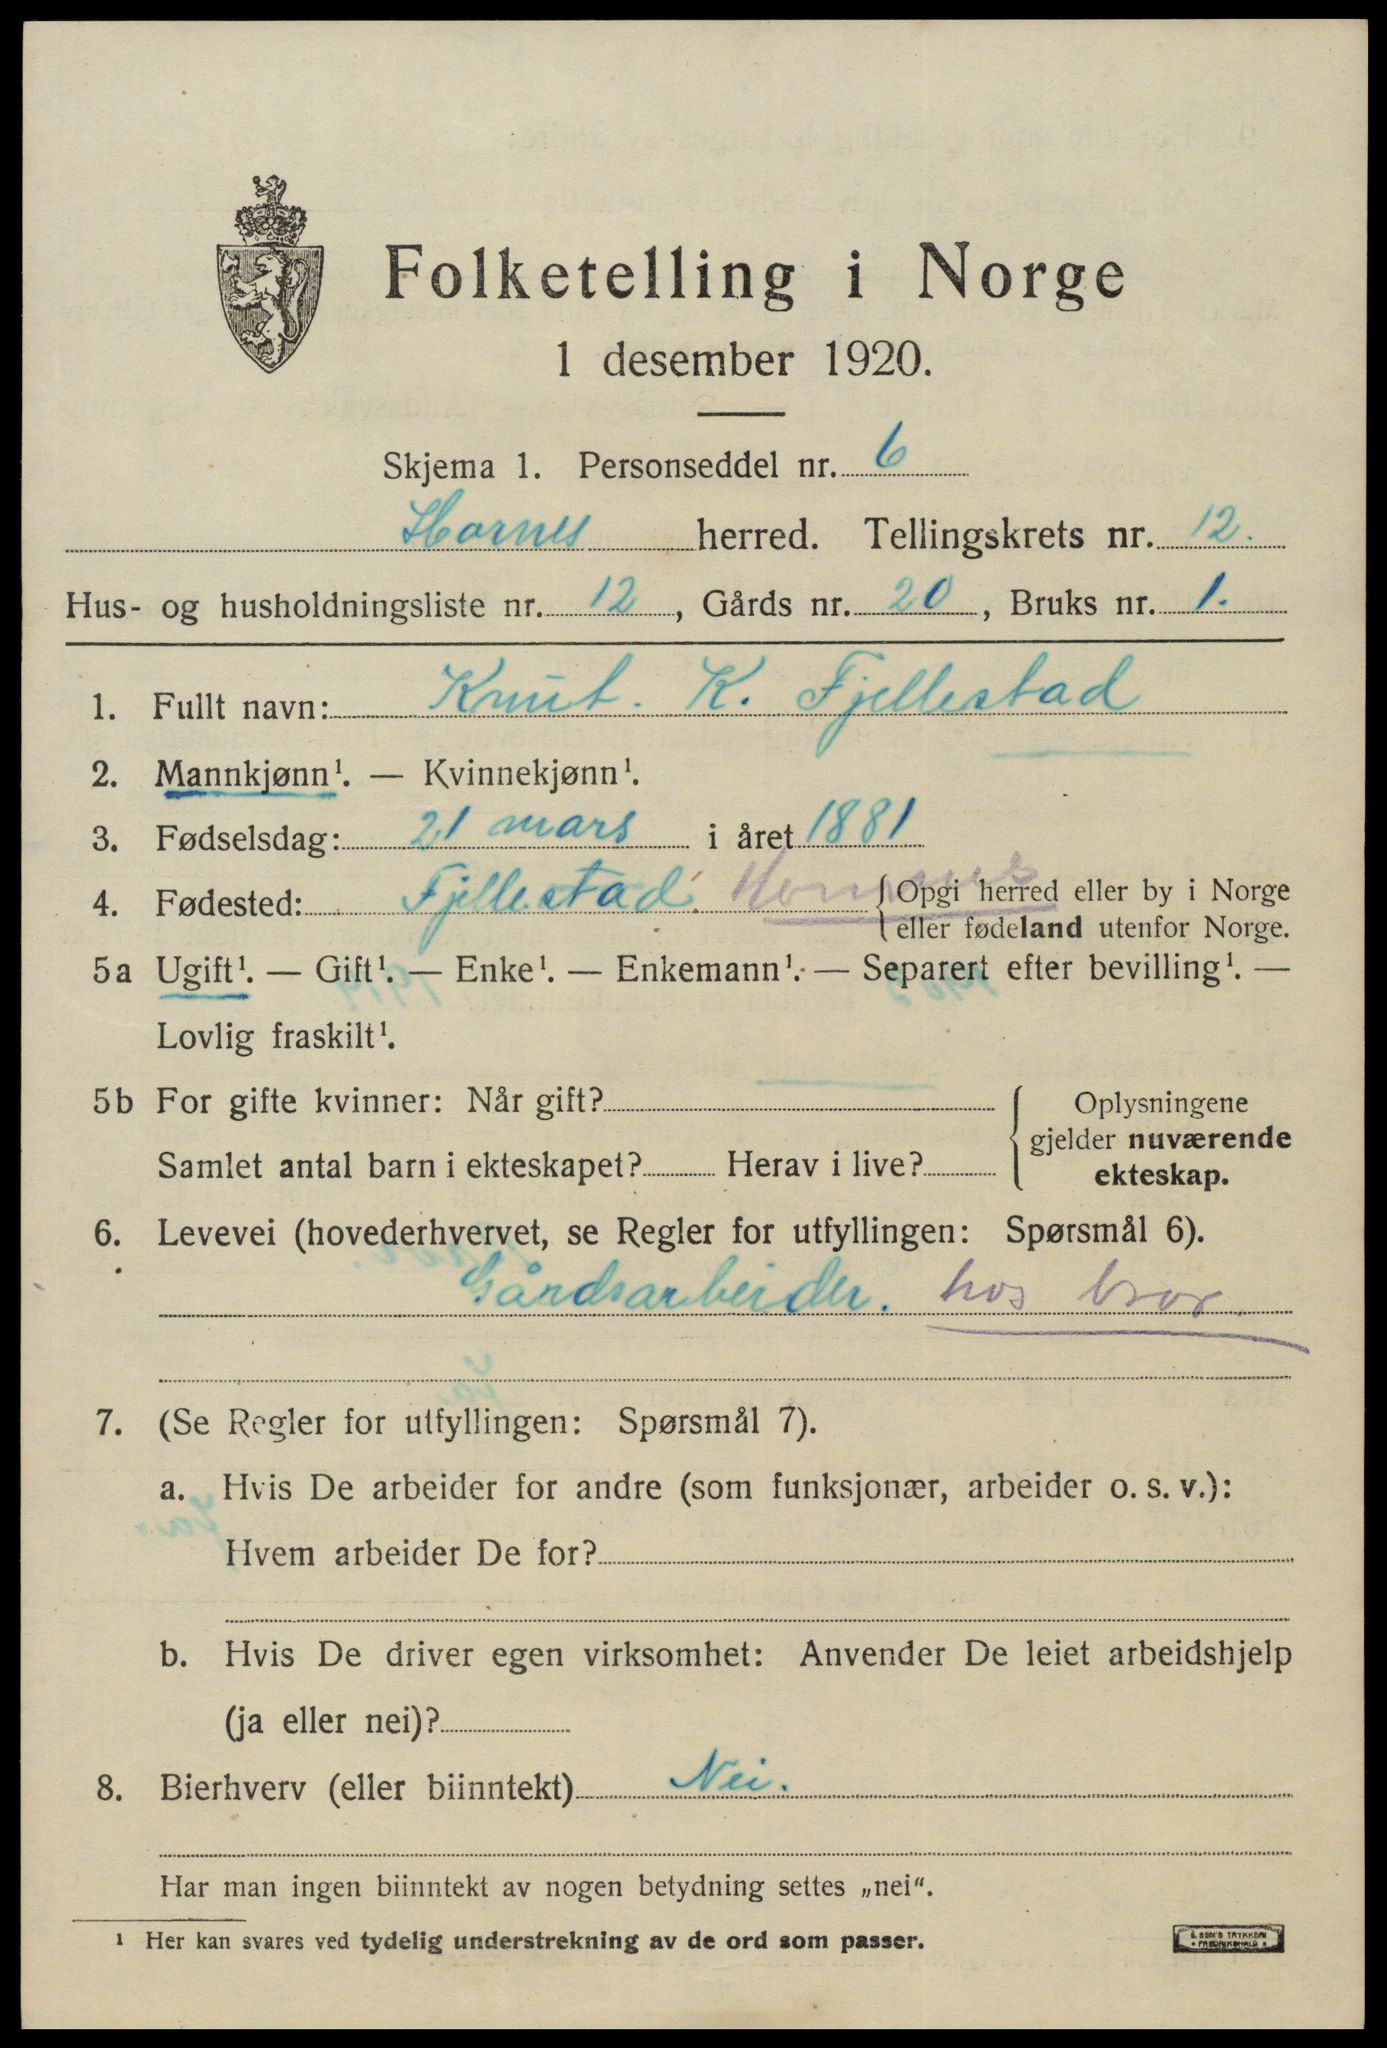 Folketelling i Norge
1 desember 1920.
Skjema 1. Personseddel nr. 6
Hornes herred. Tellingskrets nr. 12.
Hus- og husholdningsliste nr. 12, Gårds nr. 20, Bruks nr. 1.
1. Fullt navn: Knut. K. Fjellestad
2. Mannkjønn¹. — Kvinnekjønn¹.
3. Fødselsdag: 21 mars i året 1881
4. Fødested: Fjellestad. Hornnes {Opgi herred eller by i Norge
eller fødeland utenfor Norge.
5a Ugift¹. — Gift¹. — Enke¹. — Enkemann¹. — Separert efter bevilling¹. —
Lovlig fraskilt¹.
5b For gifte kvinner: Når gift?
Samlet antal barn i ekteskapet? Herav i live?
Oplysningene
gjelder nuværende
ekteskap.
6. Levevei (hovederhvervet, se Regler for utfyllingen: Spørsmål 6).
Gårdsarbeider. hos bror.
7. (Se Regler for utfyllingen: Spørsmål 7).
a. Hvis De arbeider for andre (som funksjonær, arbeider o. s. v.):
Hvem arbeider De for?
b. Hvis De driver egen virksomhet: Anvender De leiet arbeidshjelp
(ja eller nei)?
8. Bierhverv (eller biinntekt) Nei.
Har man ingen biinntekt av nogen betydning settes „nei“.
¹ Her kan svares ved tydelig understrekning av de ord som passer.
E. SEM'S TRYKKERI
• FREDRIKSHALD •